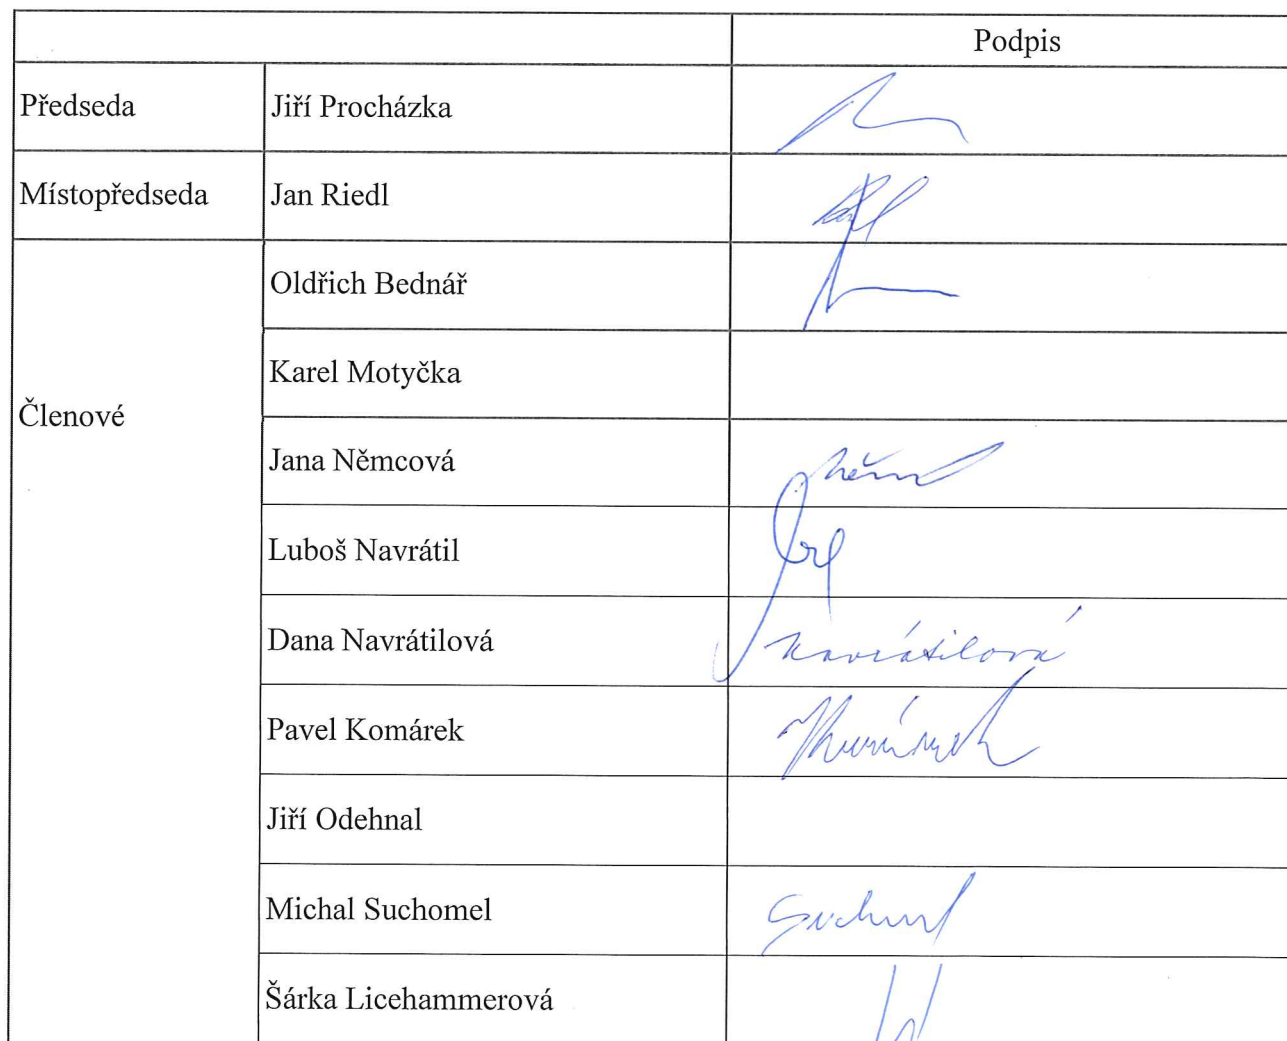 Podpis
Předseda Jiří Procházka
Místopředseda Jan Riedl
Oldřich Bednář
Karel Motyčka
Členové
Jana Němcová
Luboš Navrátil
Dana Navrátilová Navrátilová
Pavel Komárek
Jiří Odehnal
Michal Suchomel
Šárka Licehammerová